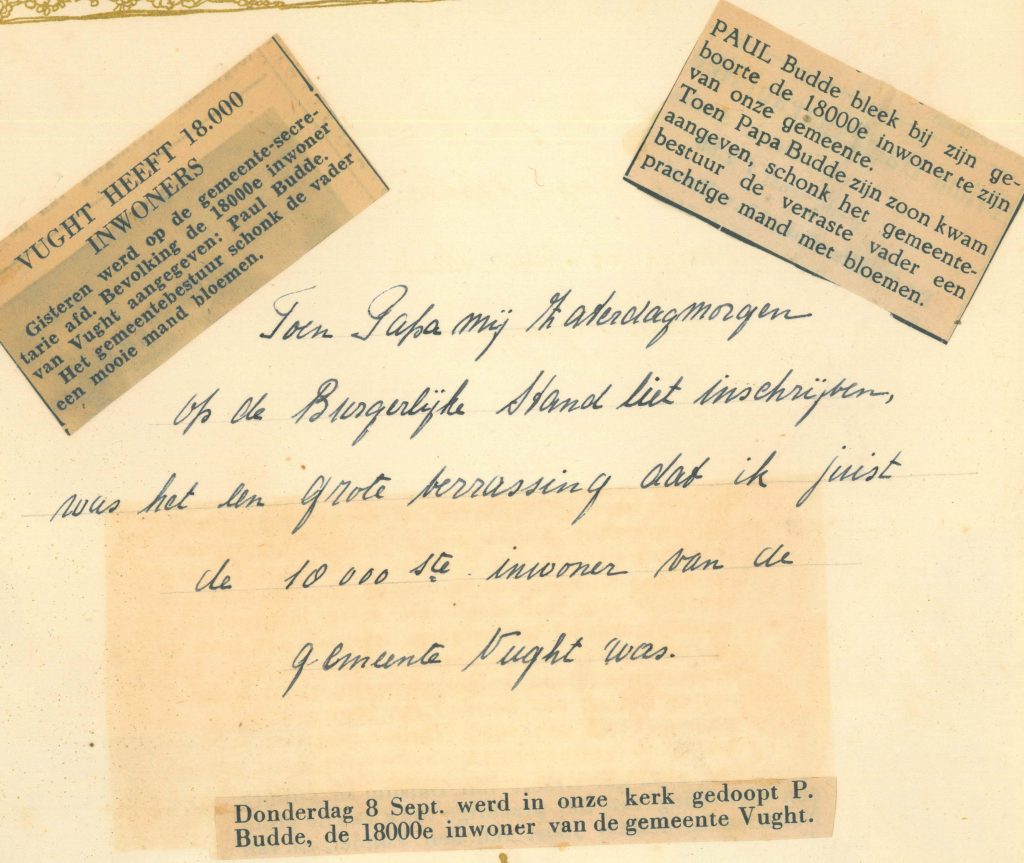 VUGHT HEEFT 18.000
INWONERS
Gisteren werd op de gemeente-secre-
tarie afd. Bevolking de 18000e inwoner
van Vught aangegeven: Paul Budde.
Het gemeentebestuur schonk de vader
een mooie mand bloemen.
PAUL Budde bleek bij zijn ge-
boorte de 18000e inwoner te zijn
van onze gemeente.
Toen Papa Budde zijn zoon kwam
aangeven, schonk het gemeente-
bestuur de verraste vader een
prachtige mand met bloemen.
Toen Papa mij Zaterdagmorgen
op de Burgerlijke Stand liet inschrijven,
was het een grote verrassing dat ik juist
de 18000ste inwoner van de
gemeente Vught was.
Donderdag 8 Sept. werd in onze kerk gedoopt P.
Budde, de 18000e inwoner van de gemeente Vught.